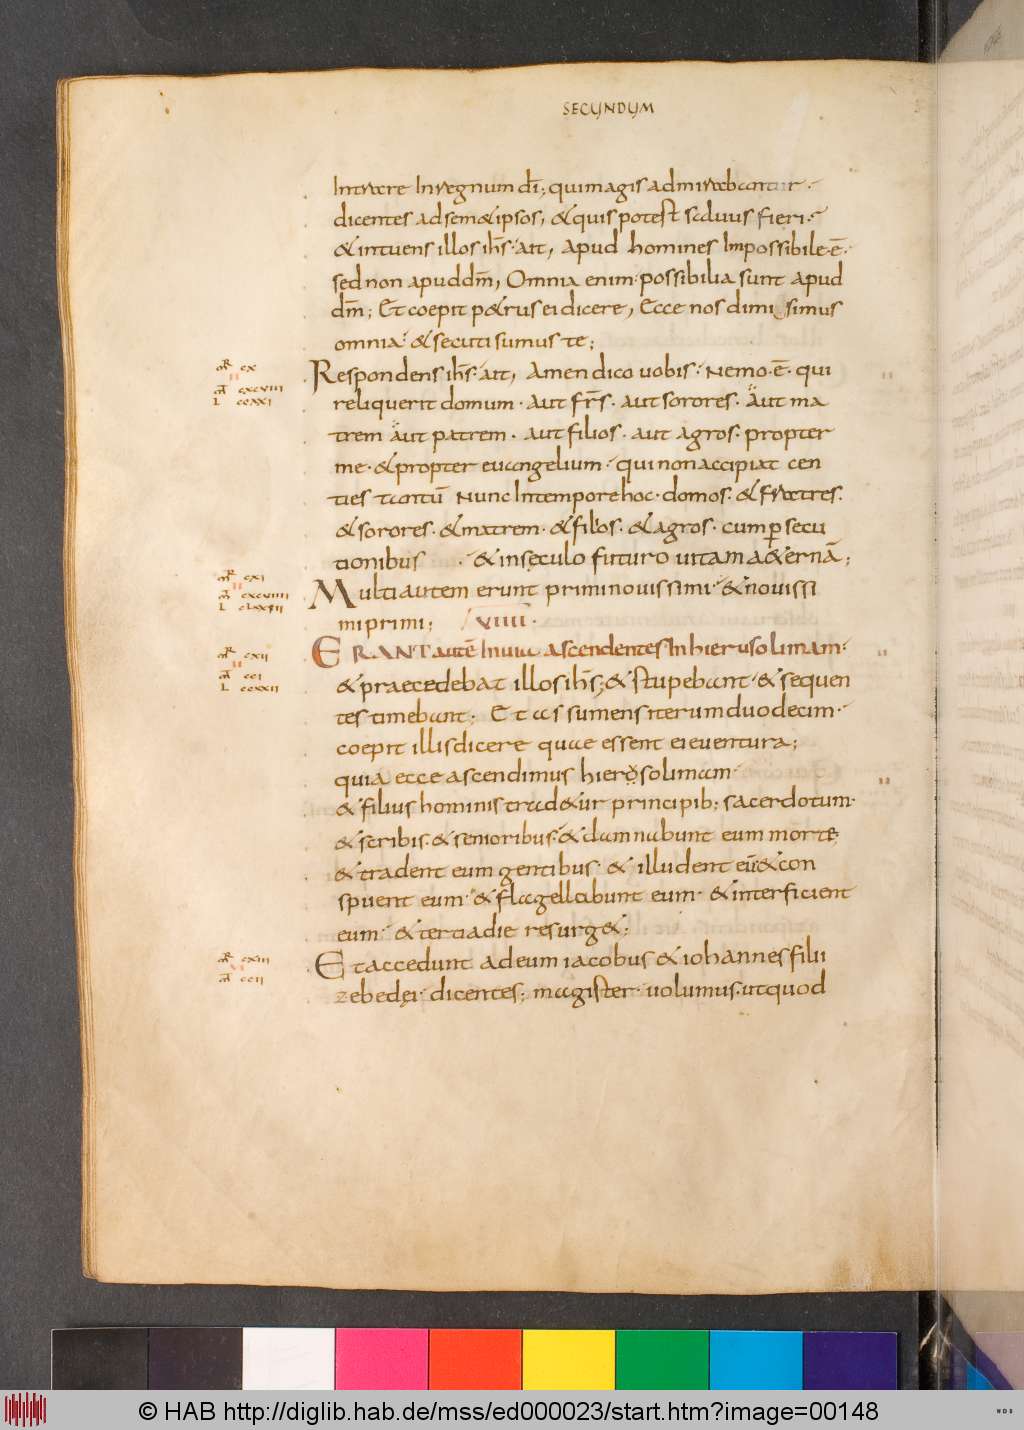 SECUNDUM
Intrare In regnum dī; qui magis admirabantur·
dicentes ad sem&ipsos, &quis potest saluus fieri·
&intuens illos ihs· ait, Apud homines Impossibile·ē·
sed non apud dm̄, Omnia enim· possibilia sunt apud
dm̄; Et coepit p&rus ei dicere, Ecce nos dimisimus
omnia· &secuti sumus te;
Respondens ihs· ait, Amen dico uobis· Nemo·ē· qui
reliquerit domum· aut frs̄· aut sorores· Aut ma
trem Aut patrem· aut filios· aut agros· propter
me· &propter euangelium· qui non accipiat cen
ties tantū Nunc In tempore hoc· domos· &fratres·
&sorores· &matrem· &filios· &agros· cum persecu
tionibus · &in sęculo futuro uitam a&ernā;
Multi autem erunt primi nouissimi· &nouissi
mi primi; VIIII·
ERANT autē In uia ascendentes In hierusolimam·
&praecedebat illos ihs; &stupebant· &sequen
tes timebant; Et assumens iterum duodecim·
coepit illis dicere quae essent ei euentura;
quia ecce ascendimus hierosolimam·
&filius hominis trad&ur principib; sacerdotum·
&scribis·&senioribus·&damnabunt eum mortę
&tradent eum gentibus· & illudent eū&con
spuent eum· &flagellabunt eum· &interficient
eum· &tertia die resurg&;
Et accedunt ad eum iacobus &iohannes filii
zebedęi· dicentes; magister· uolumus·ut quod
mR cx
mt cxcviii
L ccxxi
mR cxi
mt cxcviiii
L clxxiii
mR cxii
mt cci
L ccxxii
mR cxiii
mt ccii
© HAB http://diglib.hab.de/mss/ed000023/start.htm?image=00148